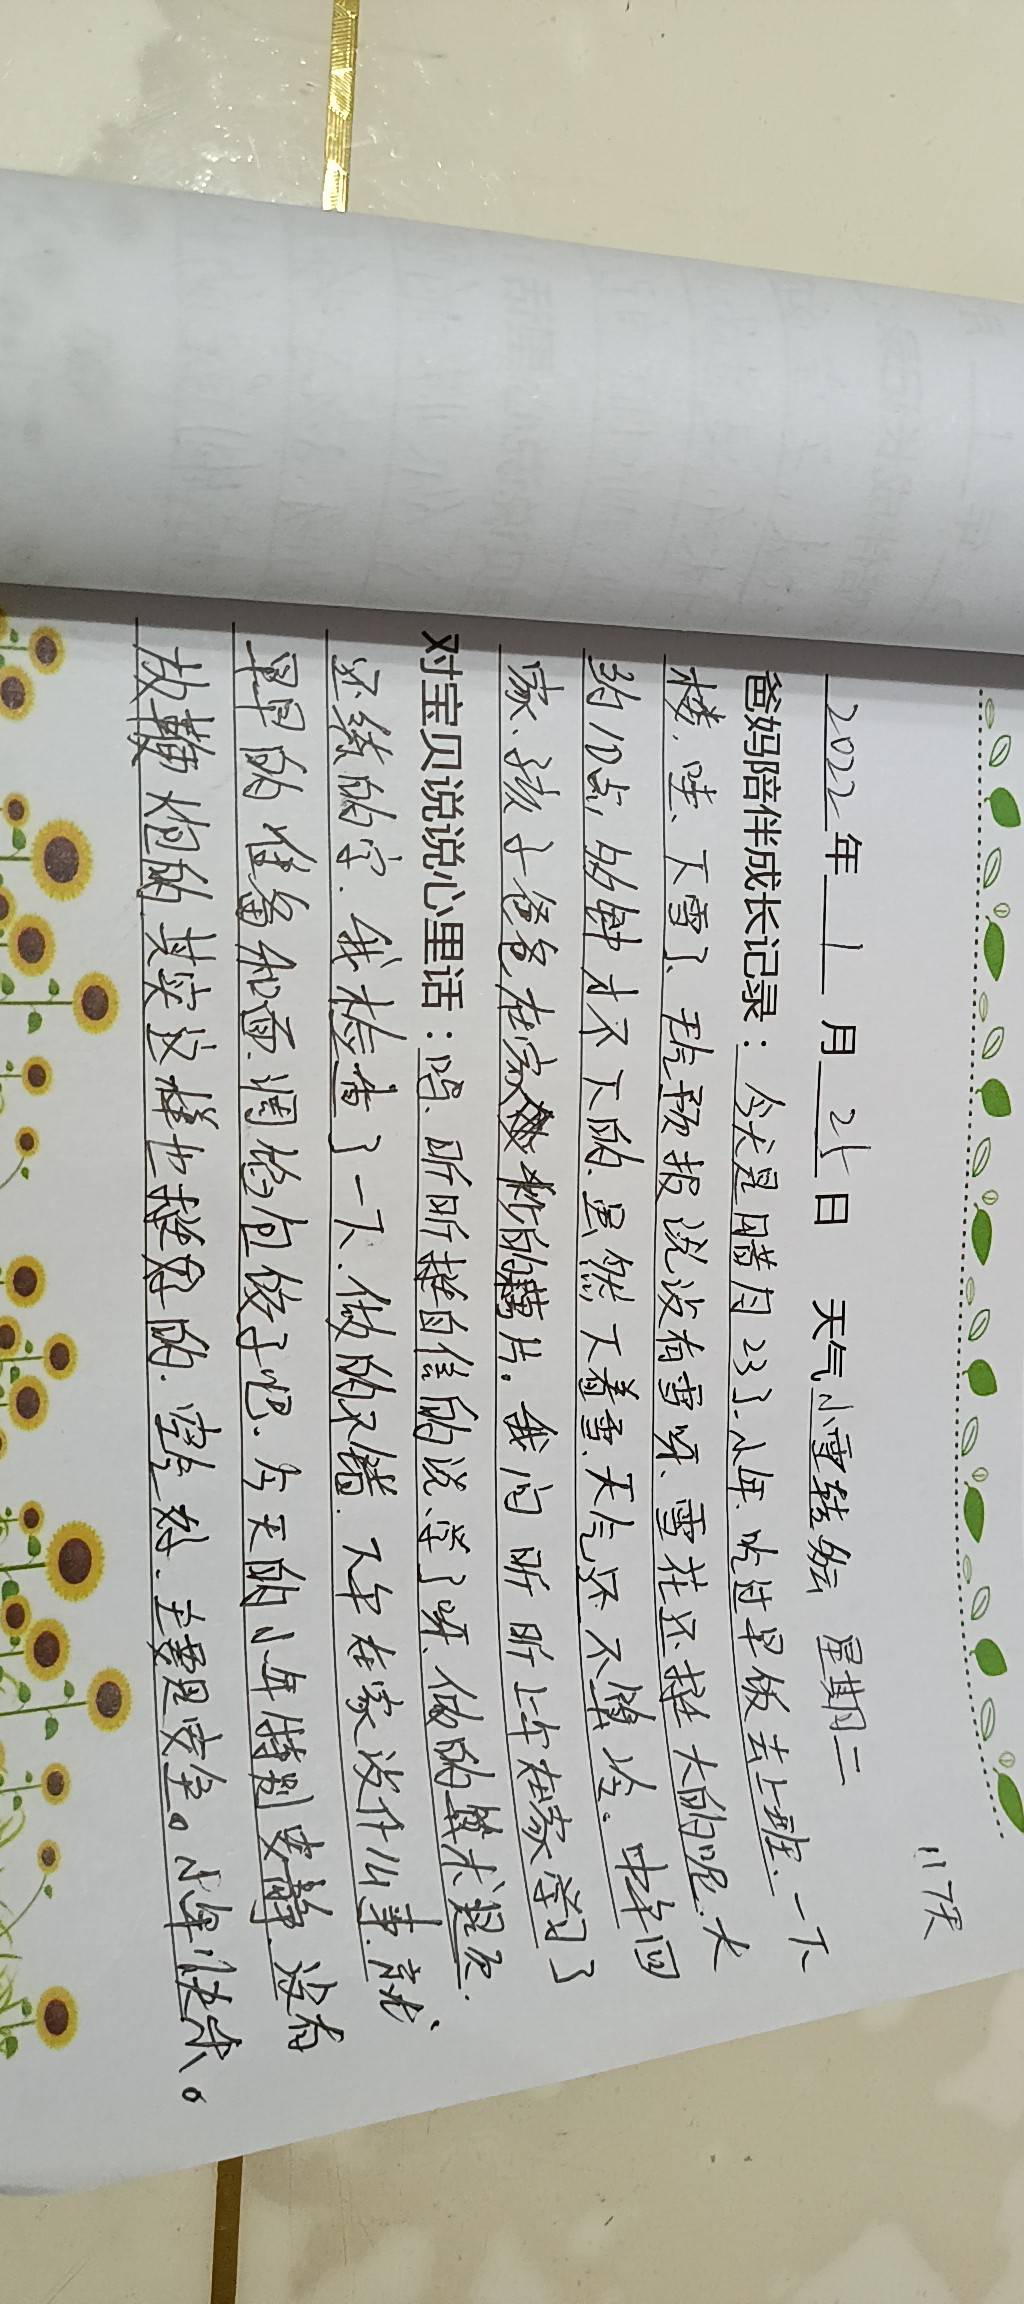 117天
2022年1月25日 天气小雪转多云 星期二
爸妈陪伴成长记录：今天是腊月23了、小年、吃过早饭去上班、一下
楼、哇、下雪了、天气预报说没有雪呀、雪花还挺大的呢、大
约10点多钟才不下的、虽然下着雪、天气还不算冷。中午回
家、孩子爸爸在家炒的藕片。我问昕昕上午在家学习了
对宝贝说说心里话：吗、昕昕挺自信的说、学了呀、做的算术题及
还练的字、我检查了一下、做的不错、下午在家没什么事、就
早早的准备和面、调馅包饺子吧、今天的小年特别安静、没有
放鞭炮的、其实这样也挺好的、空气好、主要是安全。小年快乐。